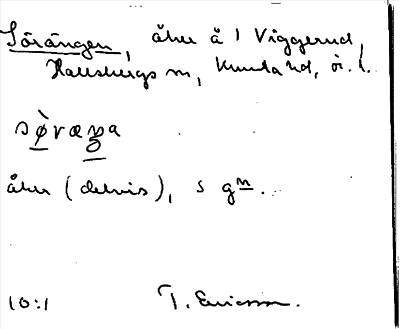 Sörängen, åker å 1 Viggerud,
Hallsbergs sn, Kumla hd, ör. l.
sø̀ræŋa
åker (delvis), s gm.
10:1 T. Ericsson.